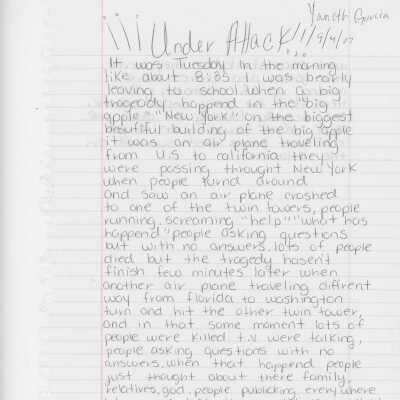 Yaneth Garcia
¡¡¡Under Attack!!! 9/4/12
It was Tuesday in the morning
like about 8:35 I was bearly
leaving to school when a big
tragedy happend in the "big
apple" "New York" on the biggest
beautiful building of the big apple
it was an air plane traveling
from U.S to california they
were passing throught New York
when people turnd around
and saw an air plane crashed
to one of the twin towers, people
running, screaming "help" "what has
happend" people asking questions
but with no answers. lots of people
died but the tragedy hasen't
finish few minutes later when
another air plane traveling diffrent
way from florida to washington
turn and hit the other twin tower,
and in that some moment lots of
people were killed t.v were talking,
people asking questions with no
answers. when that happend people
just thought about there family,
relatives, god, people publicking every where